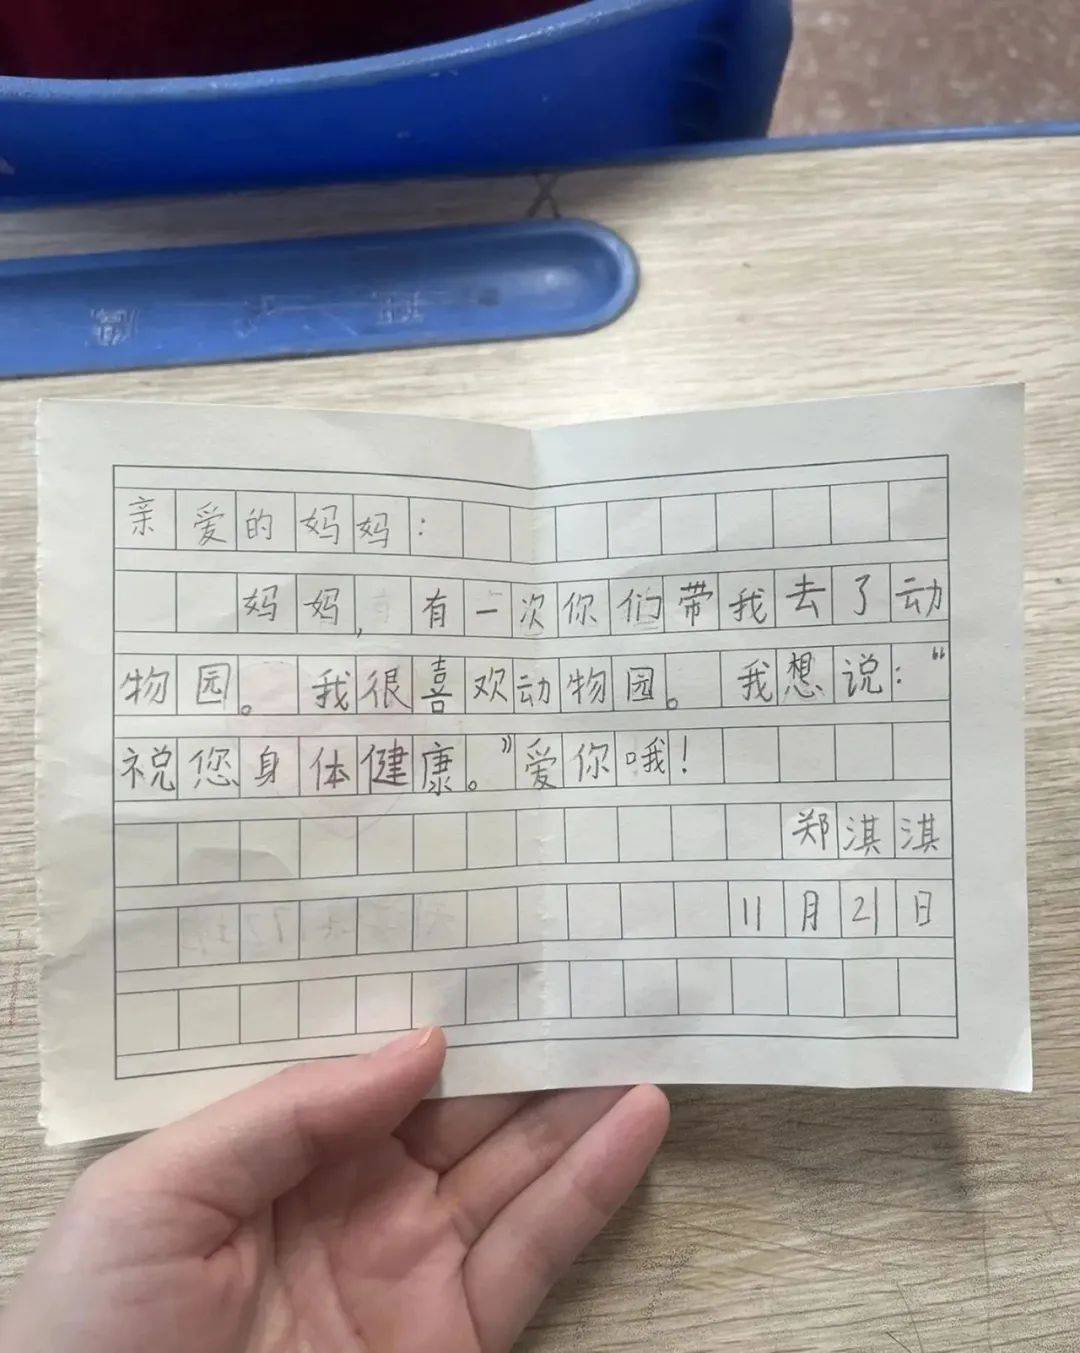 亲爱的妈妈：
妈妈，有一次你们带我去了动
物园。我很喜欢动物园。我想说：“
祝您身体健康。”爱你哦！
郑淇淇
11月21日